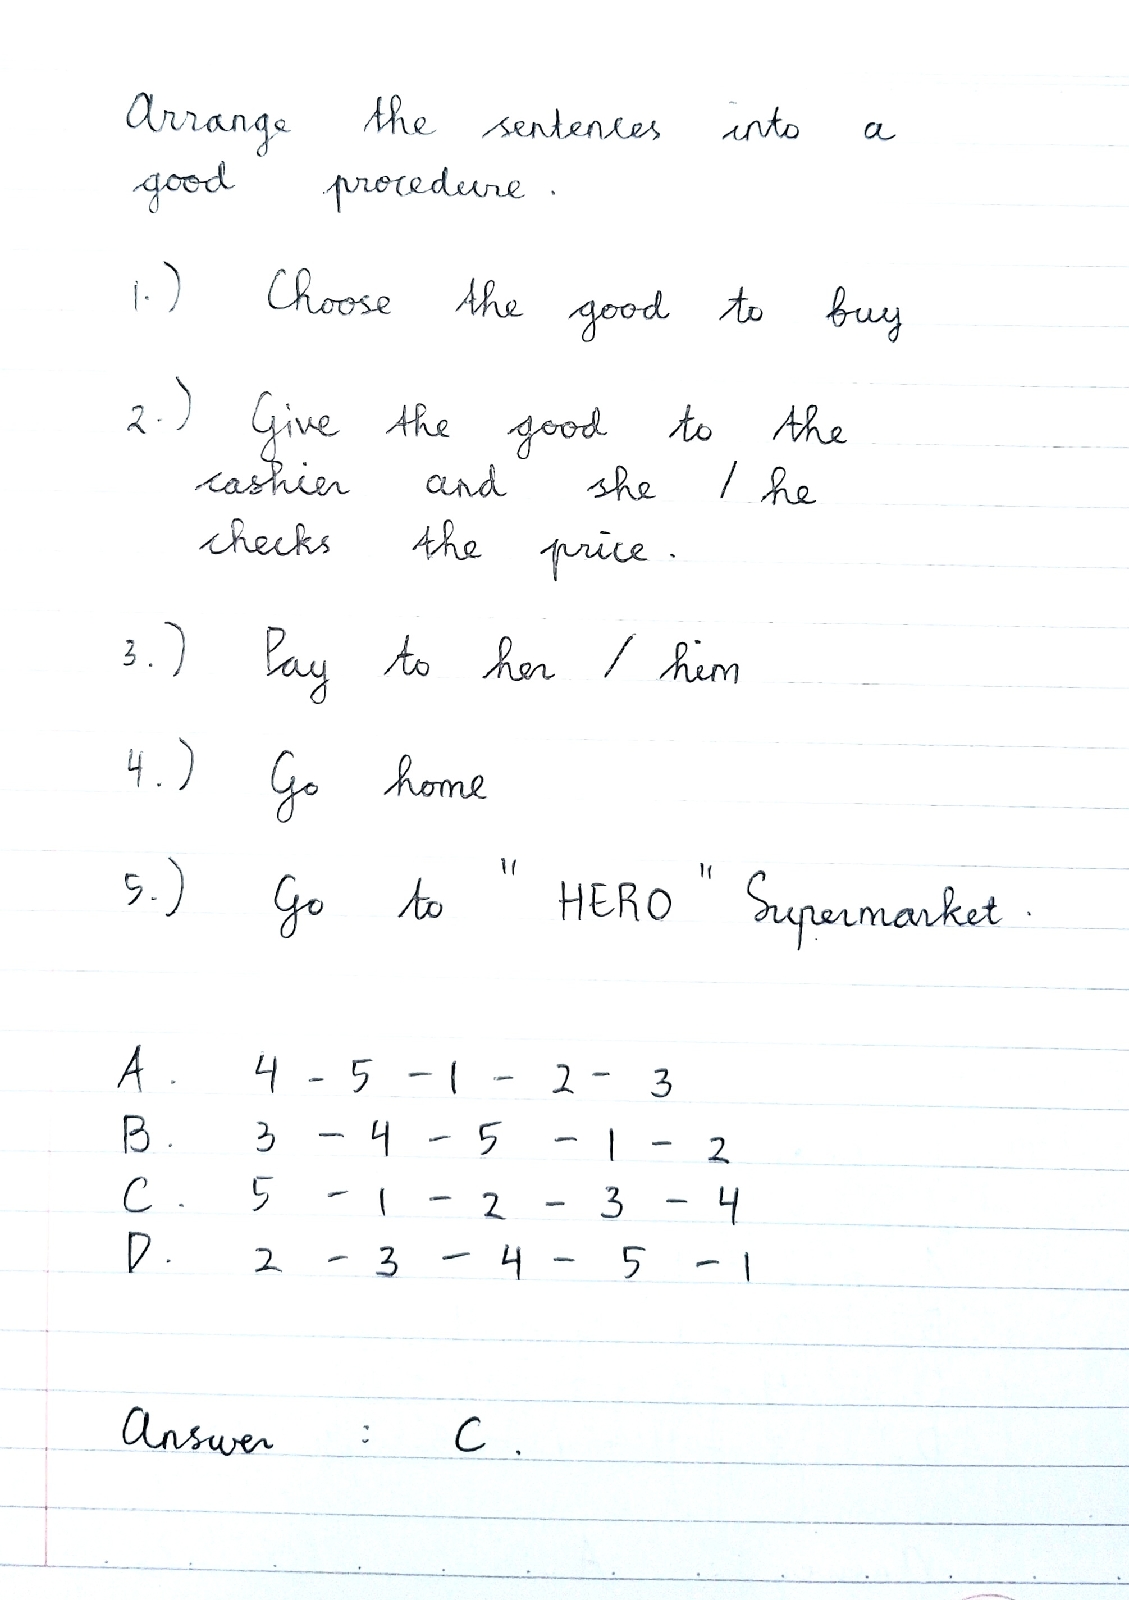 Arrange the sentences into a
good procedure.
1.) Choose the good to buy
2.) Give the good to the
cashier and she / he
checks the price.
3.) Pay to her / him
4.) Go home
5.) Go to "HERO" Supermarket.
A. 4 - 5 - 1 - 2 - 3
B. 3 - 4 - 5 - 1 - 2
C. 5 - 1 - 2 - 3 - 4
D. 2 - 3 - 4 - 5 - 1
Answer : C.